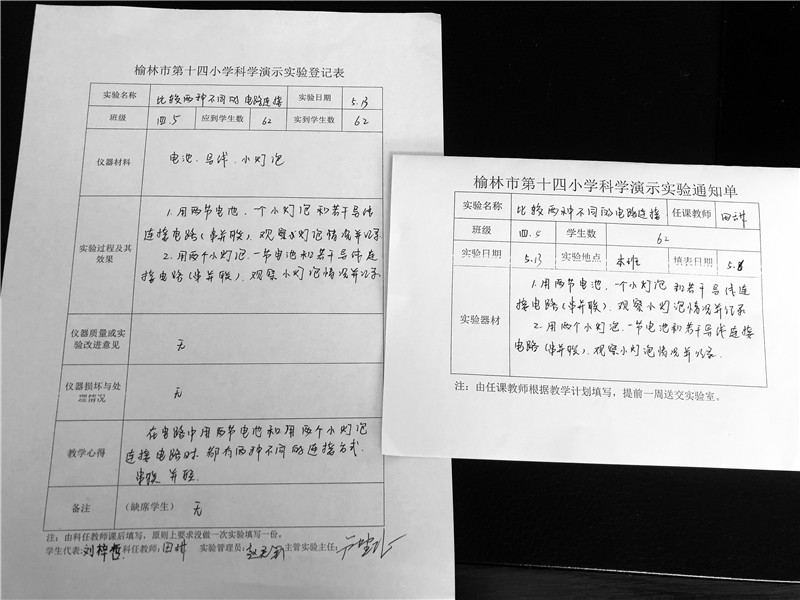 榆林市第十四小学科学演示实验登记表
实验名称 比较两种不同的电路连接 实验日期 5.13
班级 四.5 应到学生数 62 实到学生数 62
仪器材料 电池、导线、小灯泡
实验过程及其效果
1.用两节电池、一个小灯泡和若干导线
连接电路(串并联),观察小灯泡情况并记录
2.用两个小灯泡、一节电池和若干导线连
接电路(串并联),观察小灯泡情况并记录
仪器质量或实验改进意见 无
仪器损坏与处理情况 无
教学心得
在电路中用两节电池和用两个小灯泡
连接电路时,都有两种不同的连接方式.
串联 并联.
备注 (缺席学生) 无
注:由科任教师课后填写,原则上要求没做一次实验填写一份。
学生代表:刘梓哲 科任教师:田 实验管理员: 主管实验主任:
榆林市第十四小学科学演示实验通知单
实验名称 比较两种不同的电路连接 任课教师 田
班级 四.5 学生数 62
实验日期 5.13 实验地点 本班 填表日期 5.8
实验器材
1.用两节电池、一个小灯泡和若干导线连
接电路(串并联),观察小灯泡情况并记录
2.用两个小灯泡、一节电池和若干导线连接
电路(串并联),观察小灯泡情况并记录.
注:由任课教师根据教学计划填写,提前一周送交实验室。